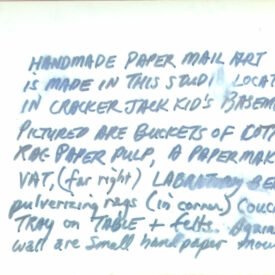 HANDMADE PAPER MAIL ART
IS MADE IN THIS STUDI LOCAT
IN CRACKER JACK KID'S BASEM
PICTURED ARE BUCKETS OF COTT
RAG PAPER PULP, A PAPERMAK
VAT, (far right) LABRATORY BE
pulverizing rags (in corner) COUC
TRAY ON TABLE + felts. Agains
wall are small hand paper mou